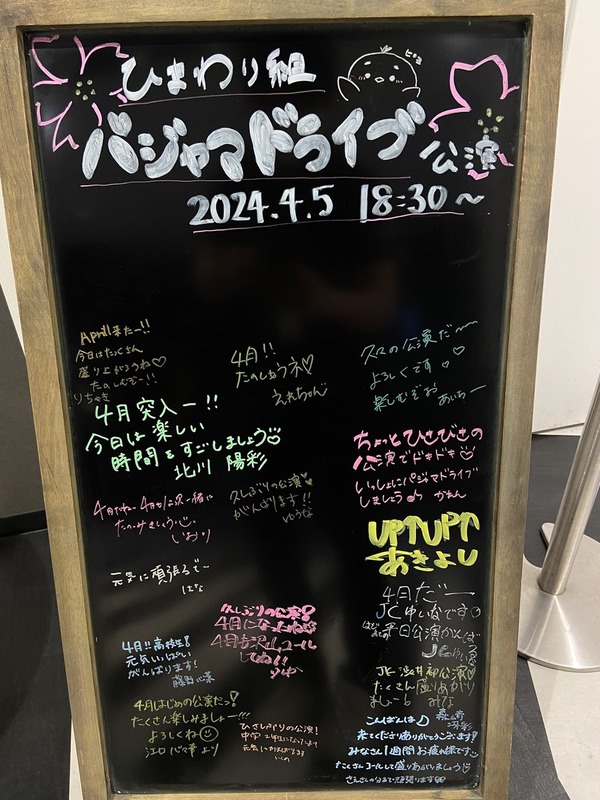 ひまわり組
ピヨ
パジャマドライブ 公演
2024.4.5 18:30~
April来たー!!
今日はたくさん
盛り上がろうね♡
たのしむぞー!!
りちゃき
4月!!
たのしもうネ♡
えれちゃん
久々の公演だ~~
よろしくです♡
楽しむぞお あいちー
4月突入ー!!
今日は楽しい
時間をすごしましょう
北川 陽彩
ちょっとひさびさの
公演でドキドキ♡
いっしょにパジャマドライブ
しましょう かれん
久しぶりの公演
がんばります!!
ゆうな
4月も一緒に
たのしみましょう
しおり
UP↑UP↑
あきよし
元気に頑張るでー
はな
4月だー
JC ゆいなです
平日公演がんば
久しぶりの公演!
4月になったね
してね!!
ゆか
4月!!高校生!
元気いっぱい
がんばります!
JK 澁井初公演♡
たくさん盛りあがり
ましょーる みな
4月はじめの公演だっ!
たくさん楽しみましょー!!!
よろしくね
江口 心々華 より
ひさしぶりの公演!
元気にがんばります
こんばんは♪
来てくださりありがとうございます!
みなさん1週間お疲れ様です
たくさんコールして盛りあがりましょう
さえさんの分まで頑張ります